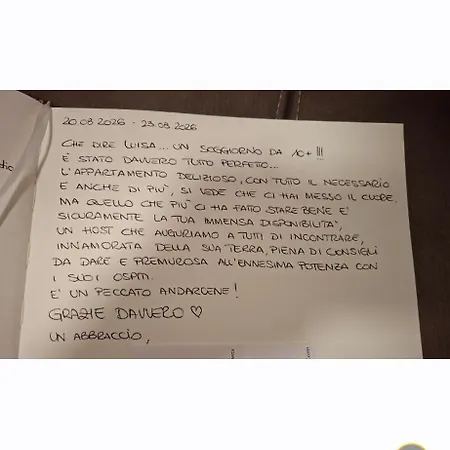 20.08.2026 - 23.08.2026
CHE DIRE LUISA... UN SOGGIORNO DA 10+ !!!
È STATO DAVVERO TUTTO PERFETTO...
L'APPARTAMENTO DELIZIOSO, CON TUTTO IL NECESSARIO
E ANCHE DI PIU', SI VEDE CHE CI HAI MESSO IL CUORE.
MA QUELLO CHE PIU' CI HA FATTO STARE BENE E'
SICURAMENTE LA TUA IMMENSA DISPONIBILITA',
UN HOST CHE AUGURIAMO A TUTTI DI INCONTRARE,
INNAMORATA DELLA SUA TERRA, PIENA DI CONSIGLI
DA DARE E PREMUROSA ALL'ENNESIMA POTENZA CON
I SUOI OSPITI.
E' UN PECCATO ANDARCENE!
GRAZIE DAVVERO ♡
UN ABBRACCIO,